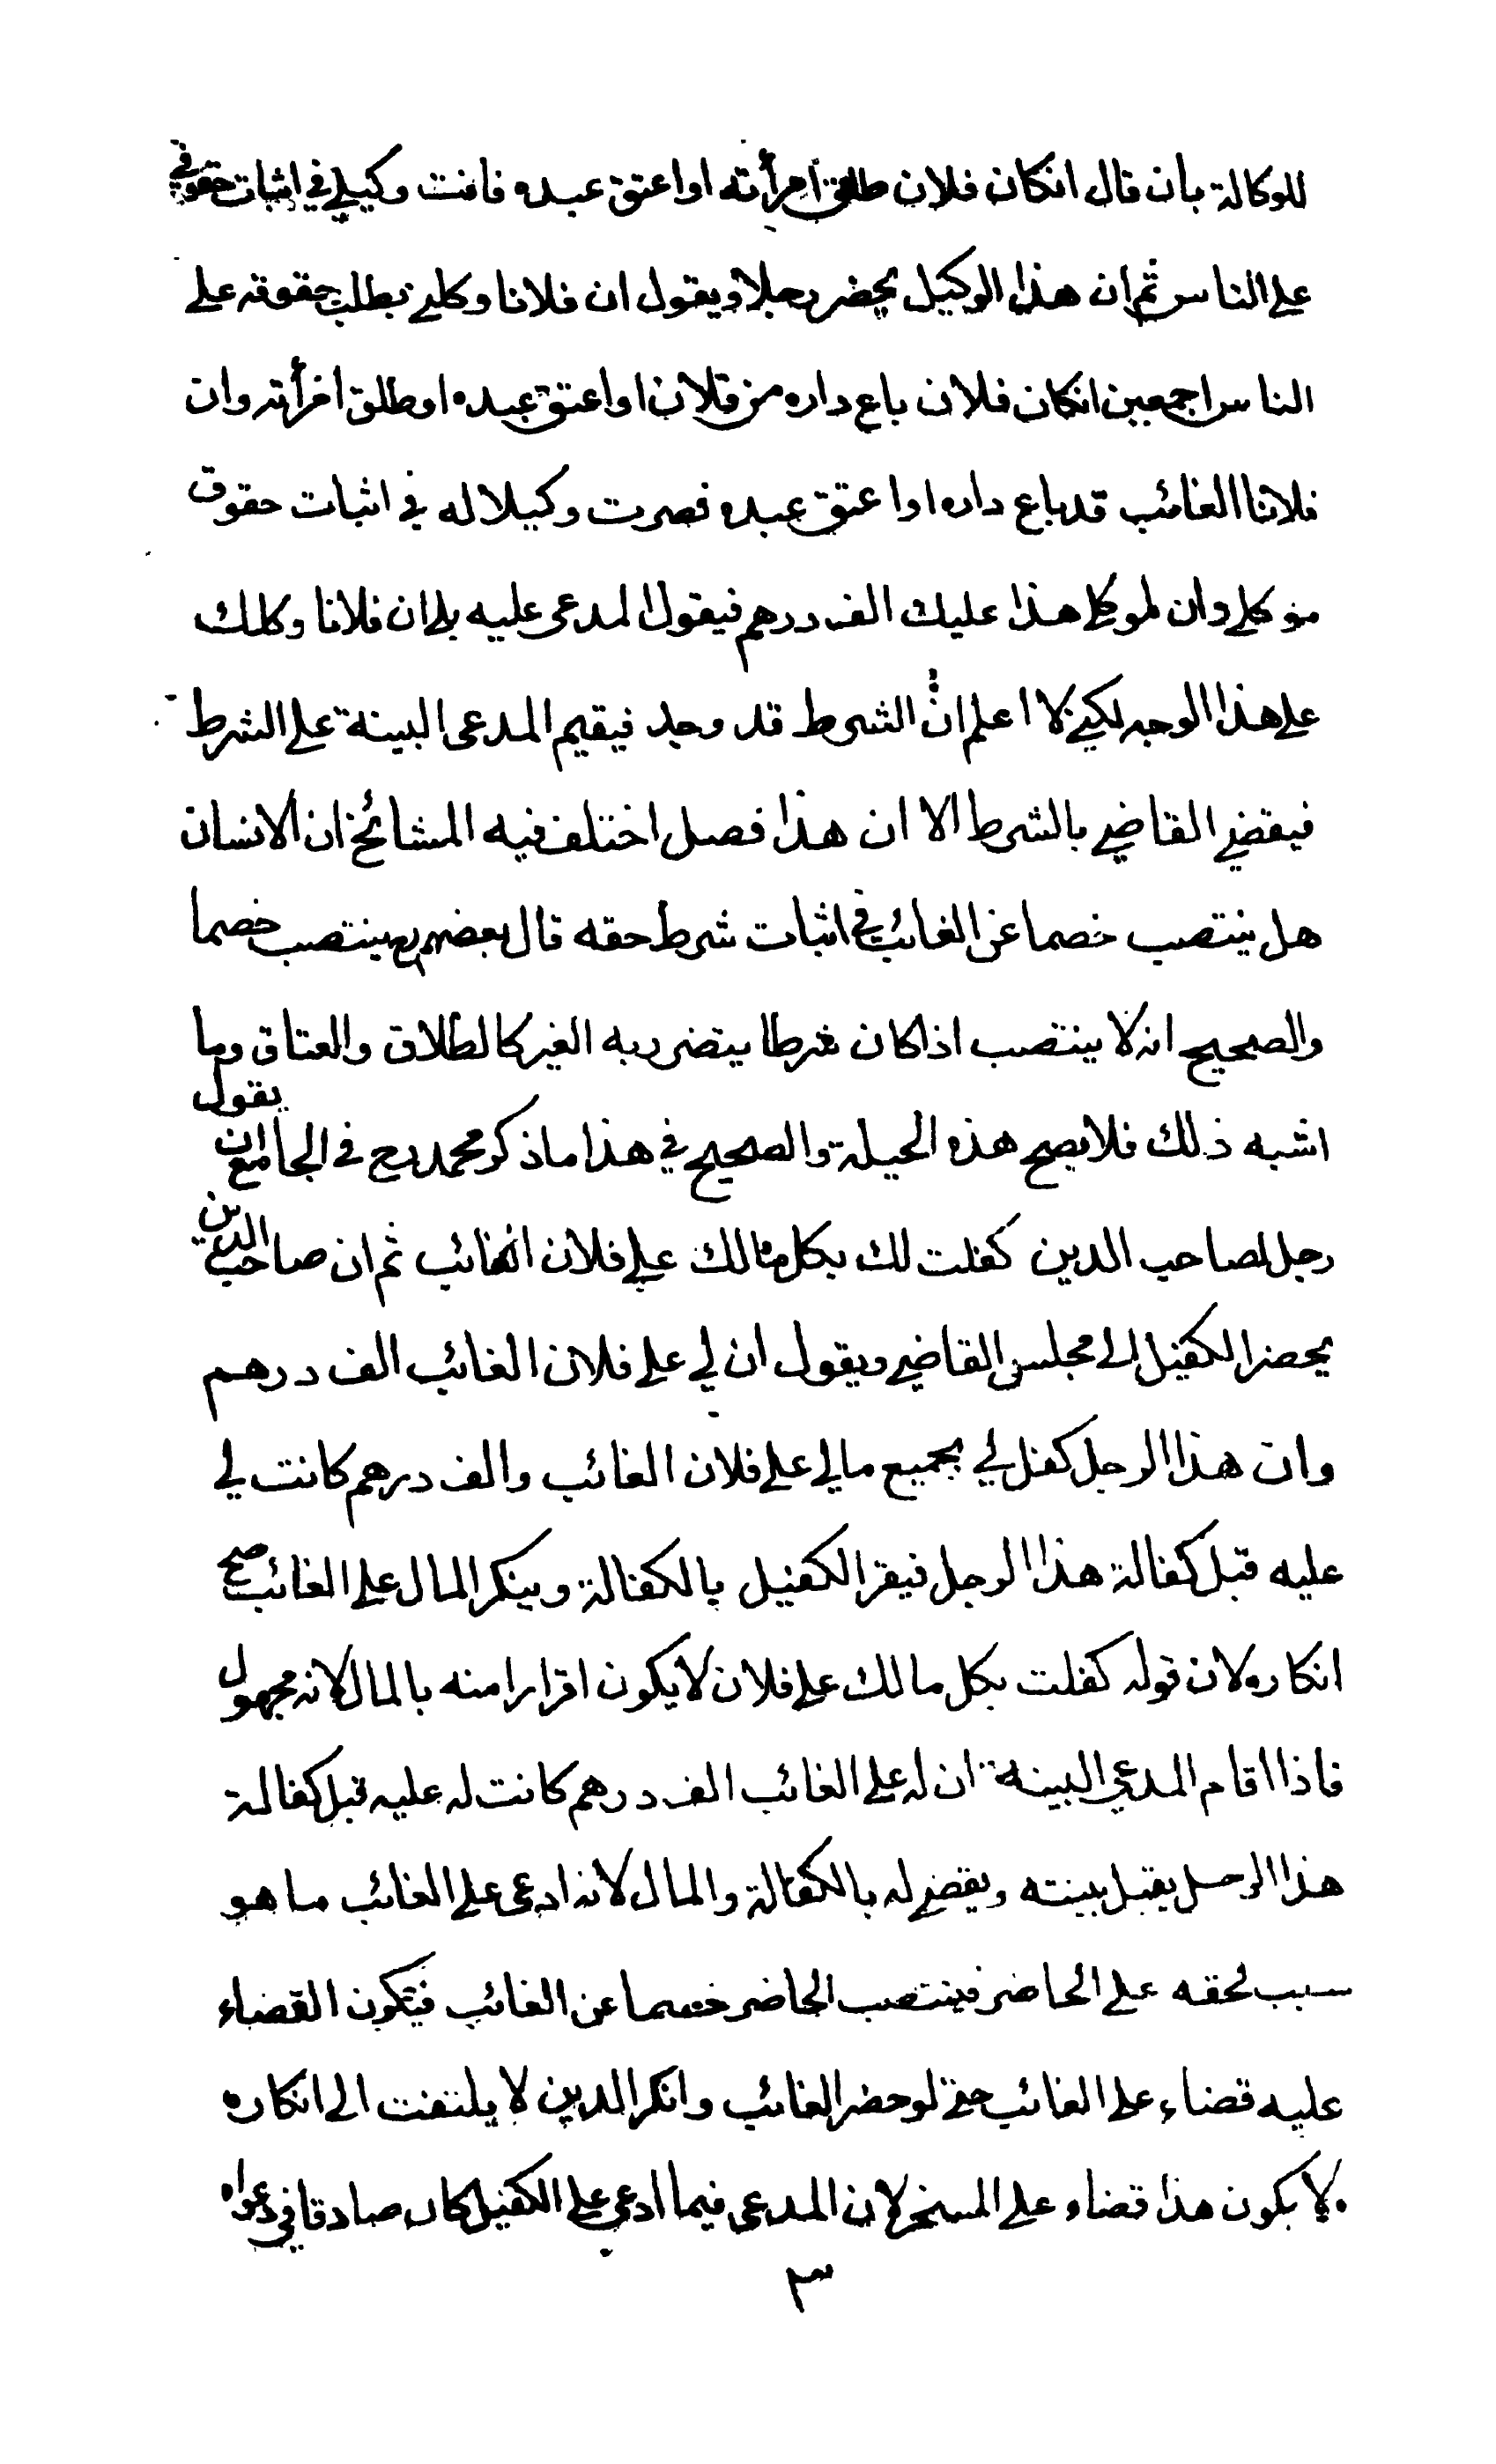 للوكالة بان قال انكان فلان طلق امرأته او اعتق عبده فانت وكيلي في اثبات حقوقي
على الناس ثم ان هذا الوكيل يحضر رجلا ويقول ان فلانا وكلني بطلب حقوقه على
الناس اجمعين انكان فلان باع داره من فلان او اعتق عبده او طلق امرأته وان
فلانا الغائب قد باع داره او اعتق عبده فصرت وكيلا له في اثبات حقوق
موكلي وان لموكلي هذا عليك الف درهم فيقول المدعى عليه بلى ان فلانا وكلك
على هذا الوجه لكني لا اعلم ان الشرط قد وجد فيقيم المدعى البينة على الشرط
فيقضي القاضي بالشرط الا ان هذا فصل اختلف فيه المشائخ ان الانسان
هل ينتصب خصما عن الغائب في اثبات شرط حقه قال بعضهم ينتصب خصما
والصحيح انه لا ينتصب اذا كان شرطا يتضرر به الغير كالطلاق والعتاق وما
اشبه ذلك فلا يصح هذه الحيلة والصحيح في هذا ما ذكر محمد رح في الجامع ان يقول
رجل لصاحب الدين كفلت لك بكل مالك على فلان الغائب ثم ان صاحب الدين
يحضر الكفيل الى مجلس القاضي ويقول ان لي على فلان الغائب الف درهم
وان هذا الرجل كفل لي بجميع مالي على فلان الغائب والف درهم كانت لي
عليه قبل كفالة هذا الرجل فيقر الكفيل بالكفالة وينكر المال على الغائب صح
انكاره لان قوله كفلت بكل مالك على فلان لا يكون اقرارا منه بالمال لانه مجهول
فاذا اقام المدعي البينة ان له على الغائب الف درهم كانت له عليه قبل كفالة
هذا الرجل يقبل بينته ويقضي له بالكفالة والمال لانه ادعى على الغائب ما هو
سبب لحقه على الحاضر فينتصب الحاضر خصما عن الغائب فيكون القضاء
عليه قضاء على الغائب حتى لو حضر الغائب وانكر الدين لا يلتفت الى انكاره
ولا يكون هذا قضاء على المسخر لان المدعى فيما ادعى على الكفيل كان صادقا في دعواه
٣